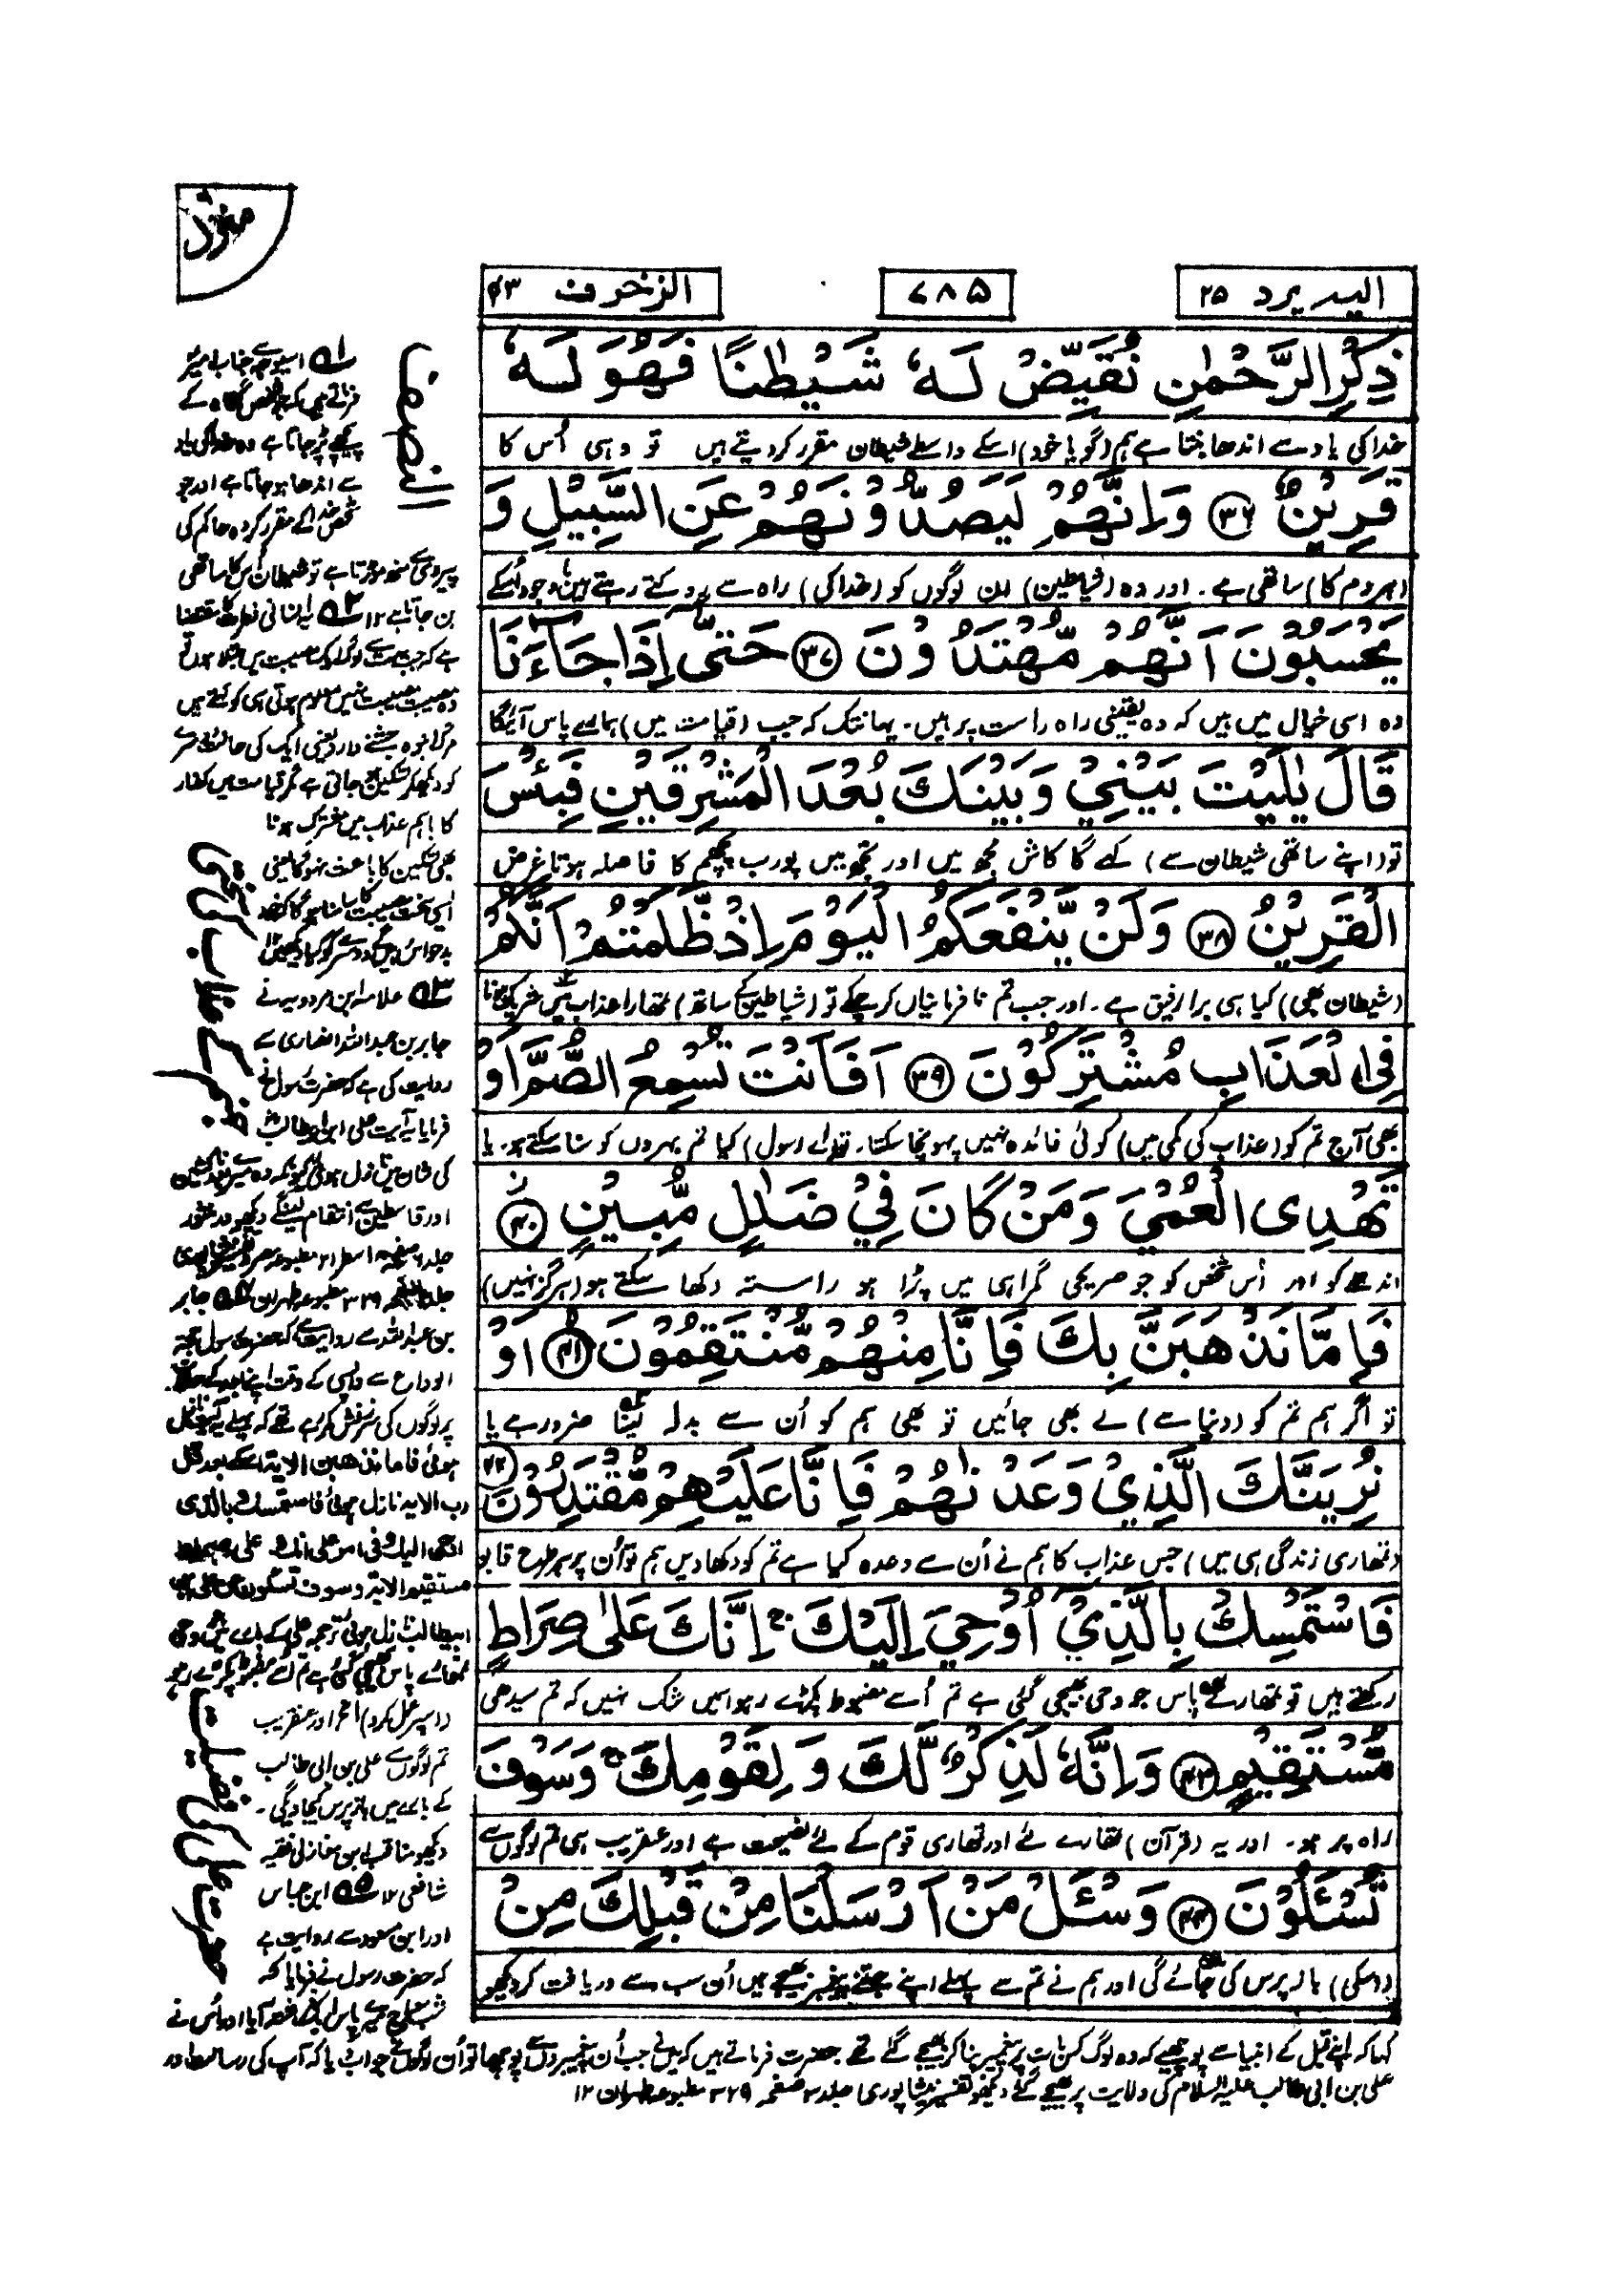 الیه یرد ۲۵
۷۸۵
الزخرف ۴۳
ذِكْرِ الرَّحْمٰنِ نُقَيِّضْ لَهٗ شَيْطٰنًا فَهُوَ لَهٗ
خدا کی یاد سے اندھا بنتا ہے ہم (گویا خود) اسکے واسطے شیطان مقرر کر دیتے ہیں تو وہی اُس کا
قَرِيْنٌ ۳۶ وَاِنَّهُمْ لَيَصُدُّوْنَهُمْ عَنِ السَّبِيْلِ وَ
(ہر دم کا) ساتھی ہے۔ اور وہ (شیاطین) ان لوگوں کو (خدا کی) راہ سے روکتے رہتے ہیں باوجود اسکے
يَحْسَبُوْنَ اَنَّهُمْ مُّهْتَدُوْنَ ۳۷ حَتّٰى اِذَا جَآءَنَا
وہ اسی خیال میں ہیں کہ وہ یقینی راہ راست پر ہیں۔ یہانتک کہ جب (قیامت میں) ہمارے پاس آئیگا
قَالَ يٰلَيْتَ بَيْنِيْ وَبَيْنَكَ بُعْدَ الْمَشْرِقَيْنِ فَبِئْسَ
تو (اپنے ساتھی شیطان سے) کہے گا کاش مجھ میں اور تجھ میں پورب پچھم کا فاصلہ ہوتا غرض
الْقَرِيْنُ ۳۸ وَلَنْ يَّنْفَعَكُمُ الْيَوْمَ اِذْ ظَّلَمْتُمْ اَنَّكُمْ
(شیطان بھی) کیا ہی برا رفیق ہے۔ اور جب تم نافرمانیاں کر چکے تو (شیاطین کے ساتھ) تمھارا عذاب میں شریک ہونا
فِي الْعَذَابِ مُشْتَرِكُوْنَ ۳۹ اَفَاَنْتَ تُسْمِعُ الصُّمَّ اَوْ
بھی آج تم کو (عذاب کی کمی میں) کوئی فائدہ نہیں پہونچا سکتا۔ تو (اے رسول) کیا تم بہروں کو سنا سکتے ہو۔ یا
تَهْدِي الْعُمْيَ وَمَنْ كَانَ فِيْ ضَلٰلٍ مُّبِيْنٍ ۴۰
اندھے کو اور اُس شخص کو جو صریحی گمراہی میں پڑا ہو راستہ دکھا سکتے ہو (ہرگز نہیں)
فَاِمَّا نَذْهَبَنَّ بِكَ فَاِنَّا مِنْهُمْ مُّنْتَقِمُوْنَ ۴۱ اَوْ
تو اگر ہم تم کو (دنیا سے) لے بھی جائیں تو بھی ہم کو اُن سے بدلہ لینا ضرور ہے یا
نُرِيَنَّكَ الَّذِيْ وَعَدْنٰهُمْ فَاِنَّا عَلَيْهِمْ مُّقْتَدِرُوْنَ ۴۲
(تمھاری زندگی ہی میں) جس عذاب کا ہم نے اُن سے وعدہ کیا ہے تم کو دکھا دیں ہم تو اُن پر ہر طرح قابو
فَاسْتَمْسِكْ بِالَّذِيْٓ اُوْحِيَ اِلَيْكَ ۚ اِنَّكَ عَلٰى صِرَاطٍ
رکھتے ہیں تو تمھارے پاس جو وحی بھیجی گئی ہے تم اُسے مضبوط پکڑے رہو اسمیں شک نہیں کہ تم سیدھی
مُّسْتَقِيْمٍ ۴۳ وَاِنَّهٗ لَذِكْرٌ لَّكَ وَلِقَوْمِكَ ۚ وَسَوْفَ
راہ پر ہو۔ اور یہ (قرآن) تمھارے لئے اور تمھاری قوم کے لئے نصیحت ہے اور عنقریب ہی تم لوگوں سے
تُسْئَلُوْنَ ۴۴ وَسْئَلْ مَنْ اَرْسَلْنَا مِنْ قَبْلِكَ مِنْ
(اسکی) باز پرس کی جائے گی اور ہم نے تم سے پہلے اپنے جتنے پیغمبر بھیجے ہیں اُن سب سے دریافت کر دیکھو
۱ اسیوجہ جناب امیر
فرماتے ہیں کہ جو شخص گناہ کے
پیچھے پڑ جاتا ہے وہ خدا کی یاد
سے اندھا ہو جاتا ہے اور جو
شخص خدا کے مقرر کردہ حاکم کی
پیروی سے منھ موڑتا ہے تو شیطان اُس کا ساتھی
بن جاتا ہے ۱۲ ۲ یہ انسانی فطرت کا مقتضا
ہے کہ جب بہت سے لوگ ایک مصیبت میں مبتلا ہوں تو
وہ مصیبت مصیبت نہیں معلوم ہوتی
کو دیکھ کر تسکین ہو جاتی ہے مگر قیامت میں کفار
کا باہم عذاب میں مشترک ہونا
بھی تسکین کا باعث نہوگا یعنی
ایسی سخت مصیبت کا سامنا ہوگا کہ خود
۳ علامہ ابن مردویہ نے
جابر بن عبد اللہ انصاری سے
روایت کی ہے کہ حضرت رسول نے
فرمایا یہ آیت علی ابن ابیطالب
کی شان میں نازل ہوئی کیونکہ وہ میرے بعد ناکثین
اور قاسطین سے انتقام لینگے دیکھو در منثور
بن عبد اللہ سے روایت ہے کہ حضرت رسول حجۃ
الوداع سے واپسی کے وقت اپنے
ہوئی فاما نذهبن الآیۃ اسکے بعد قل
رب الآیہ نازل ہوئی فاستمسك بالذی
اوحی الیك فی امر علی انك علی صراط
مستقیم الآیۃ وسوف تسئلون عن علی بن
ابیطالب نازل ہوئی ترجمہ علی کے بارے میں جو وحی
تمھارے پاس بھیجی گئی ہے تم اسے مضبوط پکڑے رہو
(اسپر عمل کرو) الخ اور عنقریب
تم لوگوں سے علی بن ابی طالب
کے بارے میں باز پرس کیجاویگی۔
دیکھو مناقب ابن مغازلی فقیہ
شافعی ۱۲ ۵ ابن عباس
اور ابن مسعود سے روایت ہے
کہ حضرت رسول نے فرمایا کہ
شب معراج میرے پاس ایک فرشتہ آیا اور اُس نے
کہا کہ اپنے قبل کے انبیا سے پوچھیے کہ وہ لوگ کس بات پر پیغمبر بنا کر بھیجے گئے تھے حضرت فرماتے ہیں کہ میں نے جب اُن پیغمبروں سے پوچھا تو اُن لوگوں نے جواب دیا کہ آپ کی رسالت اور
علی بن ابی طالب علیہ السلام کی ولایت پر بھیجے گئے دیکھو تفسیر نیشاپوری جلد ۳ صفحہ ۳۲۹ مطبوعہ طہران ۱۲